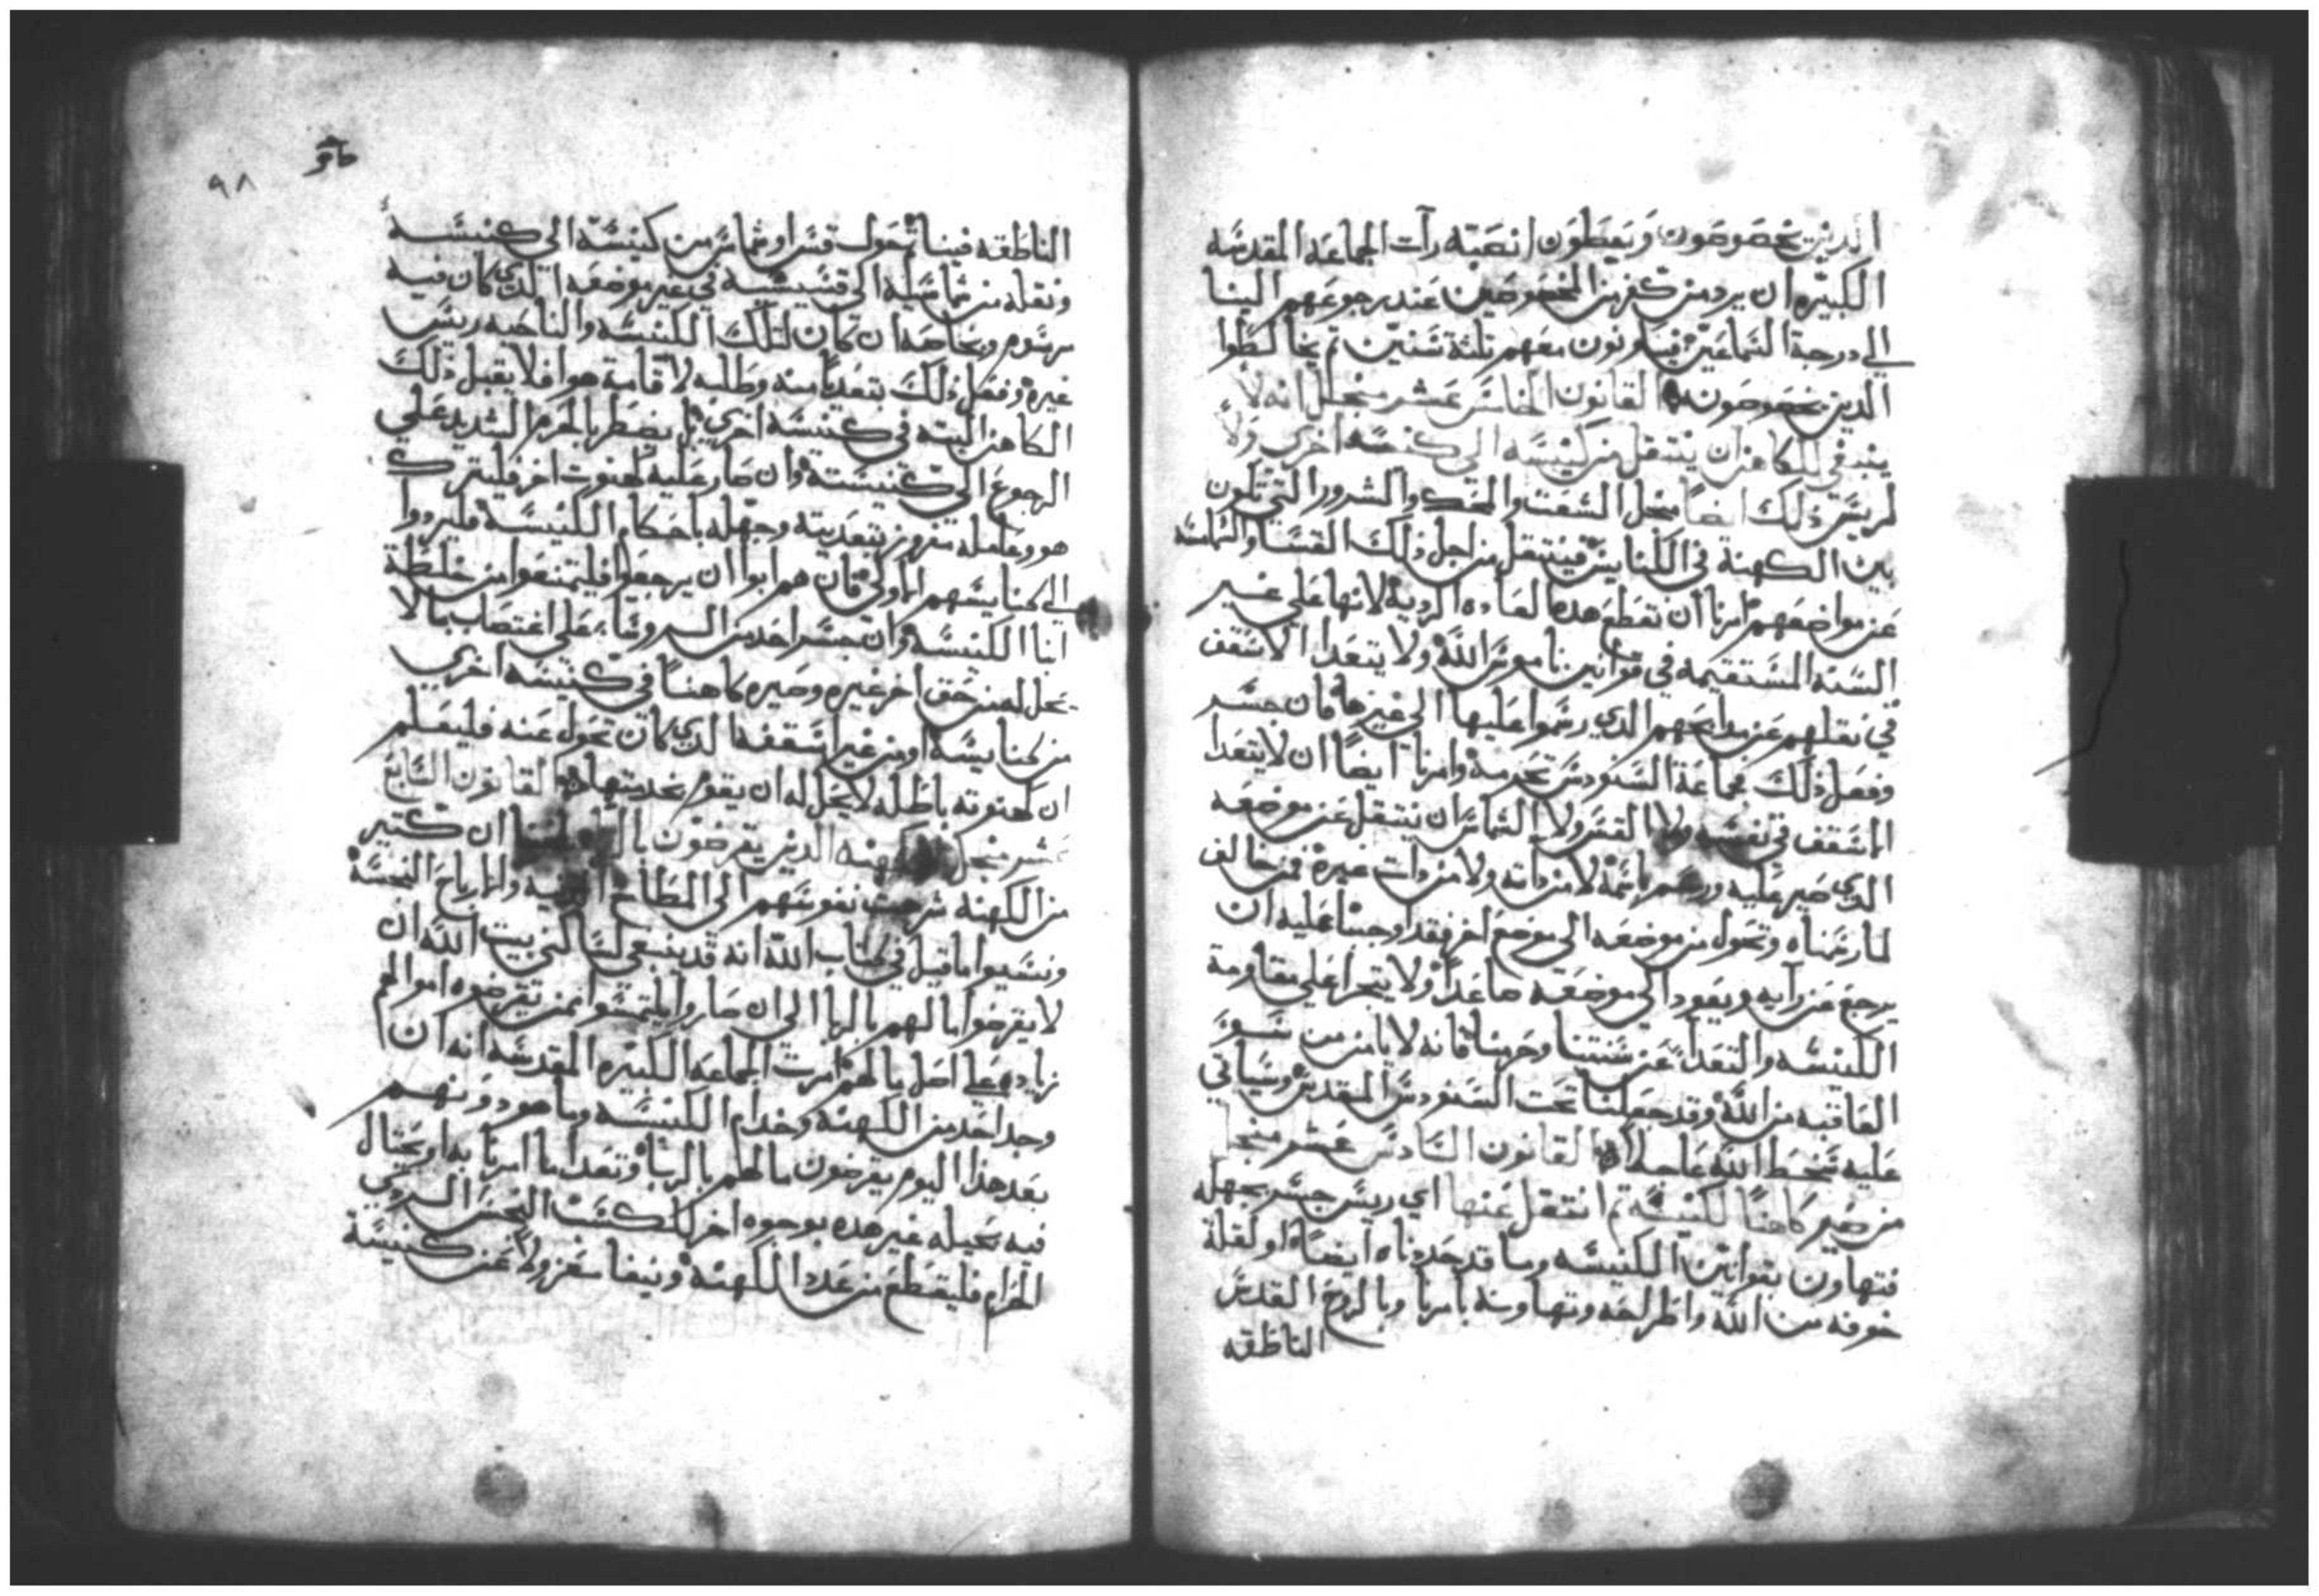 الدين يخصوصون ويعطون انصبته رآت الجماعه المقدسه
الكبيره ان يرد من كفر من المخصوصين عند رجوعهم الينا
الي درجة السماعين فيكونون معهم تلثة سنين تم يخالطوا
الدين يخصوصون القانون الخامس عشر منجلل انه لا
ينبغي للكاهن ان ينتقل من كنيسه الي كنيسه اخري ولا
لريس ذلك ايضا منجل الشغت والمحك والشرور التي تكون
بين الكهنة في الكنايس فينتقل من اجل ذلك القسا والشماسه
عن مواضعهم امرنا ان نقطع هده العاده الرديه لانها علي غير
السنه المستقيمه في قوانين ناموس الله ولا يتعدا الاسقف
في نقلهم عن مدابحهم الدي رسموا عليها الي غيرها فان جسر
وفعل ذلك فجماعة السنودس تحرمه وامرنا ايضا ان لا يتعدا
الاسقف في نفسه ولا القس ولا الشماس ان ينتقل عن موضعه
الدي صير عليه ورسم باسمه لا من داته ولا من دات غيره فمن خالف
لما رسمناه وتحول من موضعه الي موضع اخر فقد اوجبنا عليه ان
يرجع عن رايه ويعود الي موضعه صاغدا ولا يتجرا علي مقاومة
الكنيسه والتعدا عن سنتنا وحرمنا فانه لا يامن من سو
العاقبه من الله وقد جعلنا تحت السنودس المقدس وسياتي
عليه سخط الله عاجلا القانون السادس عشر منجل
من صير كاهنا لكنيسه تم انتقل عنها اي ريس جسر بجهله
فتهاون بقوانين الكنيسه وما قد حددناه ايضا او لقلة
خوفه من الله واطراحه وتهاونه بامرنا وبالروح القدس
الناطقه
٩٨
الناطقه فينا تحول قسا او شماس من كنيسة الي كنيسة
ونقله من شماسيه الي قسيسيه في غير موضعه الدي كان فيه
مرسوم وبخاصه ان كان لتلك الكنيسه والناحيه ريس
غيره وفعل ذلك بتعديا منه وطلبه لاقامة هوا فلا يقبل ذلك
الكاهن البته في كنيسه اخري بل يضطر بالحرم الشديد علي
الرجوع الي كنيسته وان صار عليه كهنوت اخر فليترك
هو وعامله مفروزين بتعديته وجهله باحكام الكنيسه فليردوا
الي كنايسهم الاولي فان هم ابوا ان يرجعوا فليتمنعوا من خلطة
ابنا الكنيسه وان جسر احد من الروسا علي اغتصاب ما لا
يحل له من حق اخر غيره وصيره كاهنا في كنيسه اخري
من كنايسه او من غير اسقفه الدي كان تحول عنه فليعلم
ان كهنوته باطله لا يحل له ان يقوم بخدمتها القانون السابع
عشر منجل كهنه الدين يقرضون ان كتير
من الكهنه شرهت نفوسهم الي المطامع والارباح النجسه
ونسيوا ما قيل في كتاب الله انه قد ينبغي لساكني بيت الله ان
لا يقرضوا مالهم بالربا الي ان صاروا يلتمسوا ممن يقرضوه اموالهم
زياده علي اصل مالهم فامرت الجماعه الكبيره المقدسه انه ان
وجد احد من الكهنه وخدام الكنيسه وما هو دونهم
بعد هدا اليوم يقرضون مالهم بالربا وتعدا ما امرنا به او يحتال
فيه بحيله غير هده بوجوه اخر لكسب النجس الردي
الحرام فليقطع من عدد الكهنه وينفا معزولا عن كنيسة